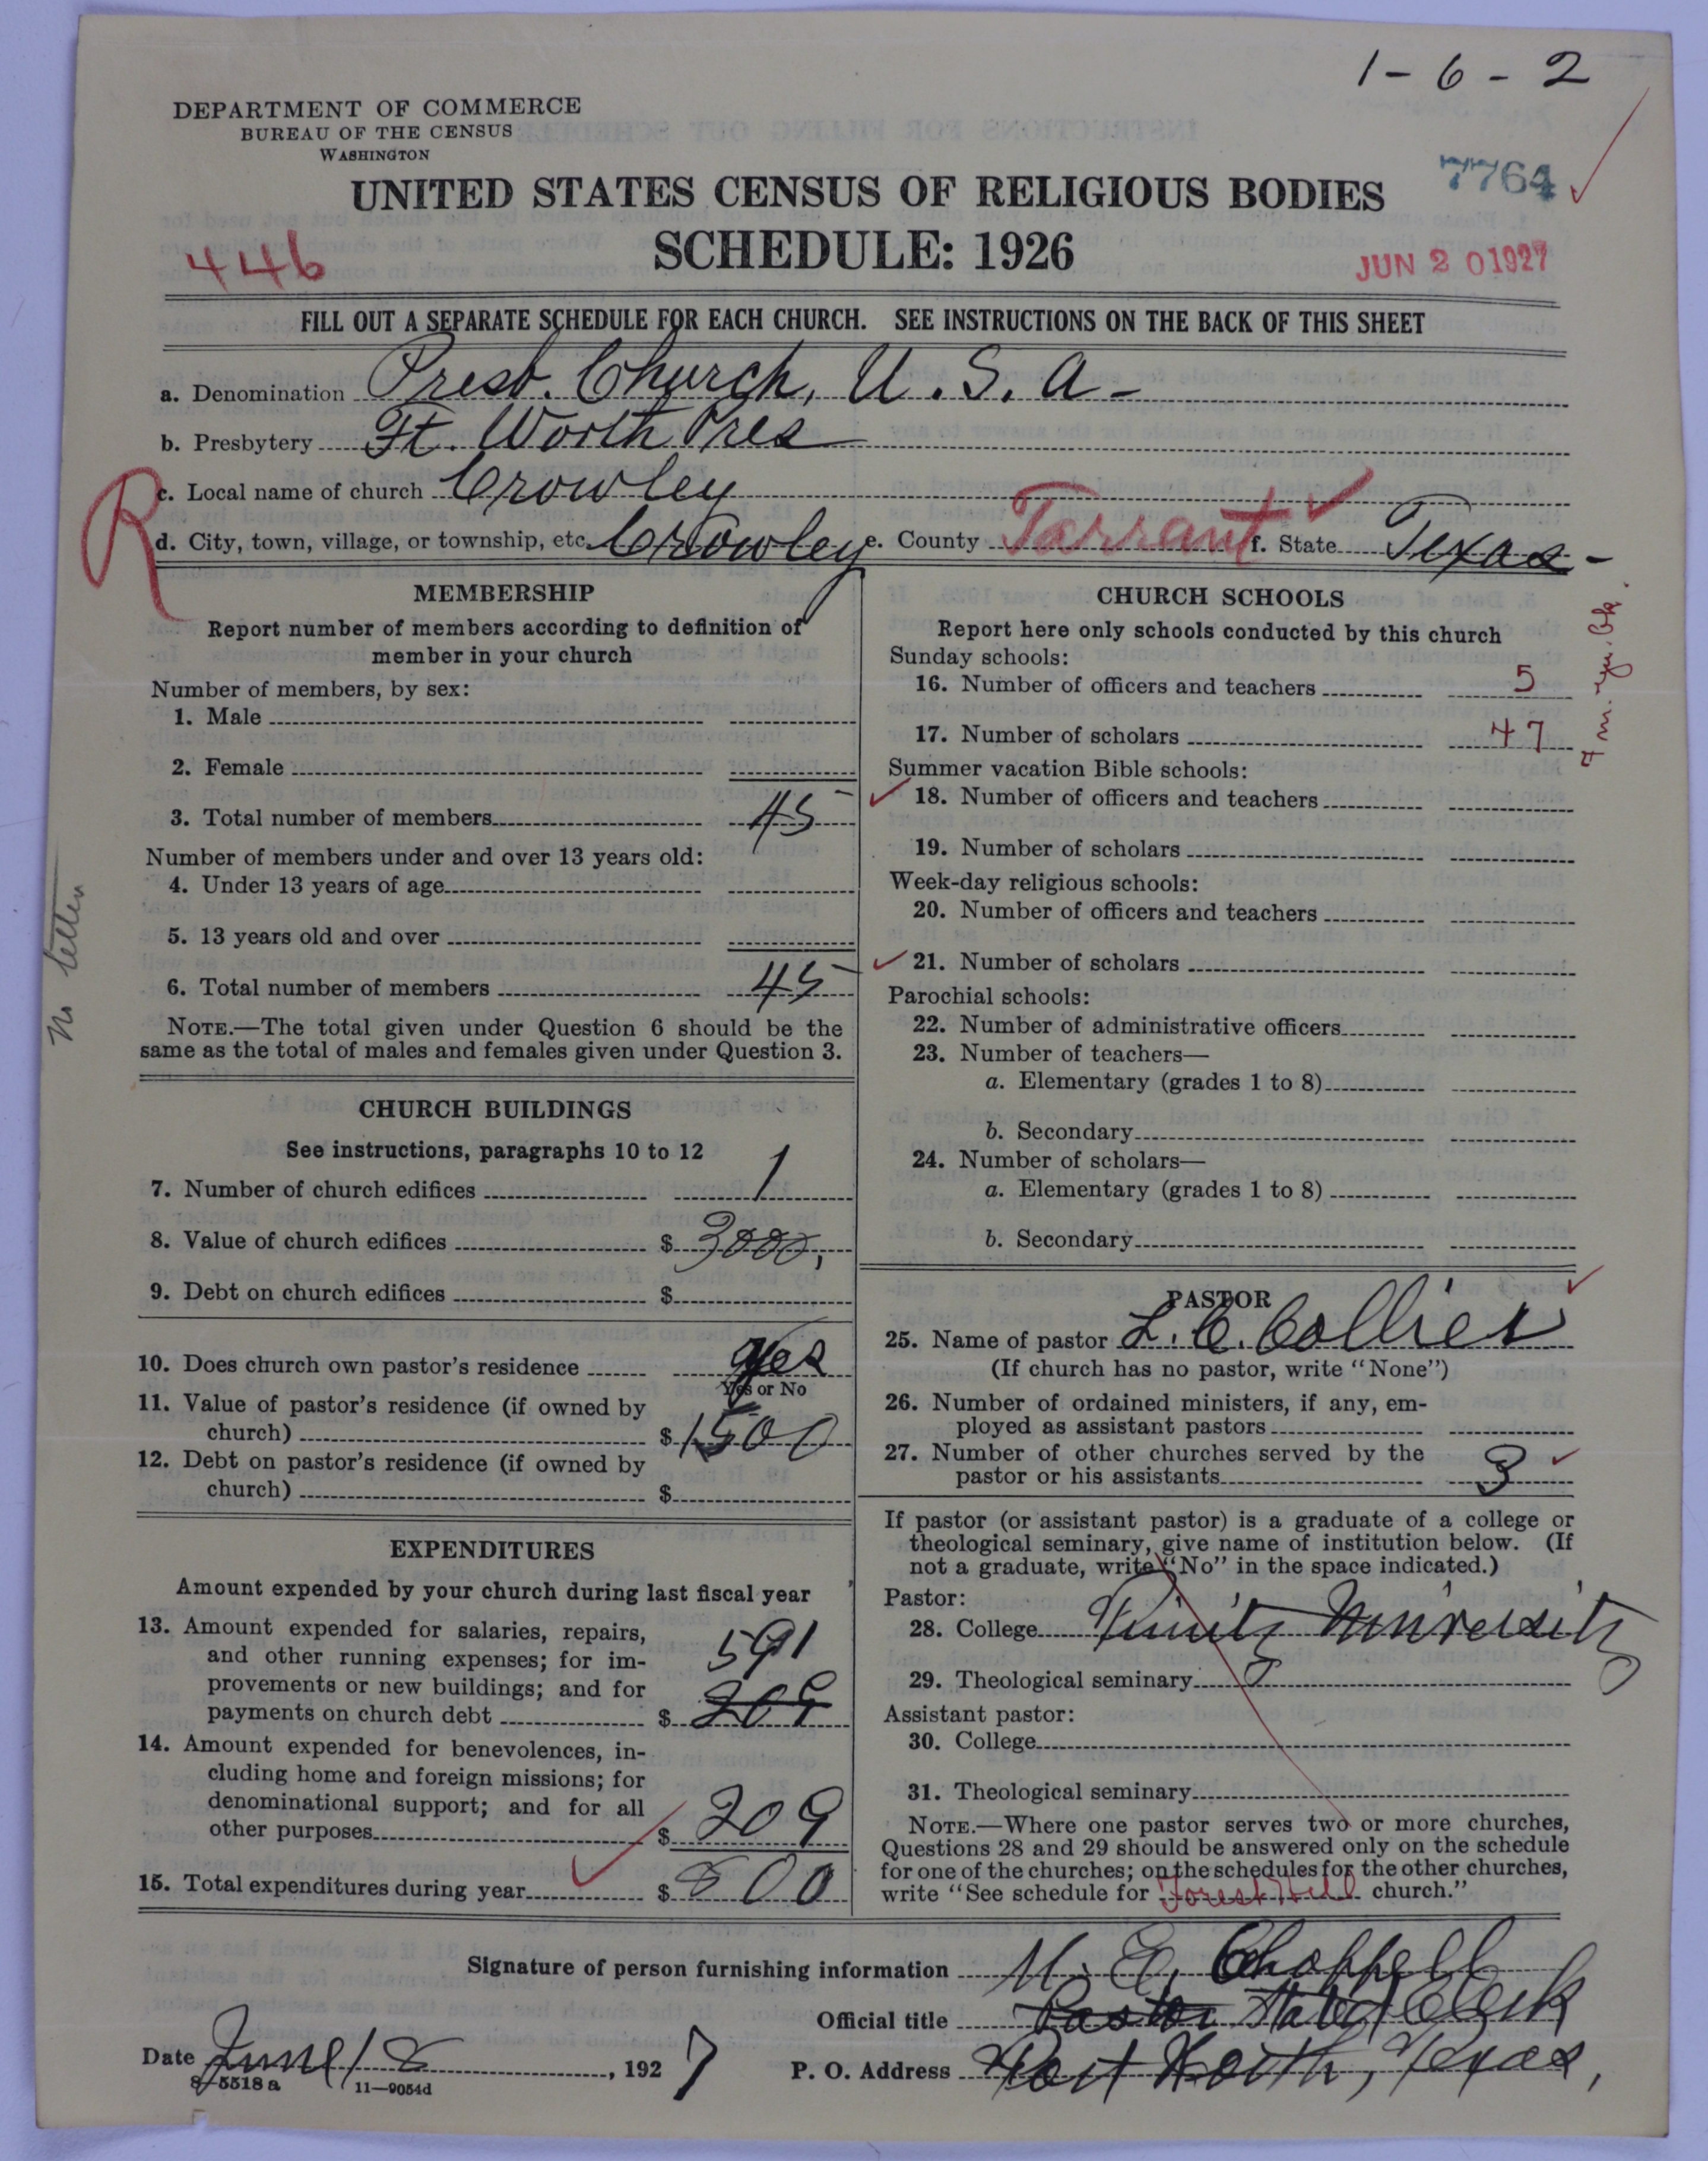 1-6-2
DEPARTMENT OF COMMERCE
BUREAU OF THE CENSUS
WASHINGTON
7764
UNITED STATES CENSUS OF RELIGIOUS BODIES
SCHEDULE: 1926
446
JUN 20 1927
FILL OUT A SEPARATE SCHEDULE FOR EACH CHURCH. SEE INSTRUCTIONS ON THE BACK OF THIS SHEET
a. Denomination Presb. Church, U.S.A-
b. Presbytery Ft. Worth Pres
R
c. Local name of church Crowley
d. City, town, village, or township, etc. Crowley e. County Tarrant f. State Texas-
MEMBERSHIP
Report number of members according to definition of
member in your church
Number of members, by sex:
1. Male
2. Female
3. Total number of members 45
Number of members under and over 13 years old:
4. Under 13 years of age
5. 13 years old and over
6. Total number of members 45
NOTE.—The total given under Question 6 should be the
same as the total of males and females given under Question 3.
No letter
CHURCH BUILDINGS
See instructions, paragraphs 10 to 12
7. Number of church edifices 1
8. Value of church edifices $ 3000,
9. Debt on church edifices $
10. Does church own pastor's residence Yes
Yes or No
11. Value of pastor's residence (if owned by
church) $ 1500
12. Debt on pastor's residence (if owned by
church) $
EXPENDITURES
Amount expended by your church during last fiscal year
13. Amount expended for salaries, repairs,
and other running expenses; for im-
provements or new buildings; and for
payments on church debt $ 591
209
14. Amount expended for benevolences, in-
cluding home and foreign missions; for
denominational support; and for all
other purposes $ 209
15. Total expenditures during year $ 800
CHURCH SCHOOLS
Report here only schools conducted by this church
Sunday schools:
16. Number of officers and teachers 5
17. Number of scholars 47
Summer vacation Bible schools:
18. Number of officers and teachers
19. Number of scholars
Week-day religious schools:
20. Number of officers and teachers
21. Number of scholars
Parochial schools:
22. Number of administrative officers
23. Number of teachers—
a. Elementary (grades 1 to 8)
b. Secondary
24. Number of scholars—
a. Elementary (grades 1 to 8)
b. Secondary
PASTOR
25. Name of pastor L. C. Collier
(If church has no pastor, write "None")
26. Number of ordained ministers, if any, em-
ployed as assistant pastors
27. Number of other churches served by the
pastor or his assistants 3
If pastor (or assistant pastor) is a graduate of a college or
theological seminary, give name of institution below. (If
not a graduate, write "No" in the space indicated.)
Pastor:
28. College Trinity University
29. Theological seminary
Assistant pastor:
30. College
31. Theological seminary
NOTE.—Where one pastor serves two or more churches,
Questions 28 and 29 should be answered only on the schedule
for one of the churches; on the schedules for the other churches,
write "See schedule for Forest Hill church."
Signature of person furnishing information M. E. Chappell
Official title Pastor Stated Clerk
Date June 18, 1927
P. O. Address Fort Worth, Texas,
8-5518a 11-9054d